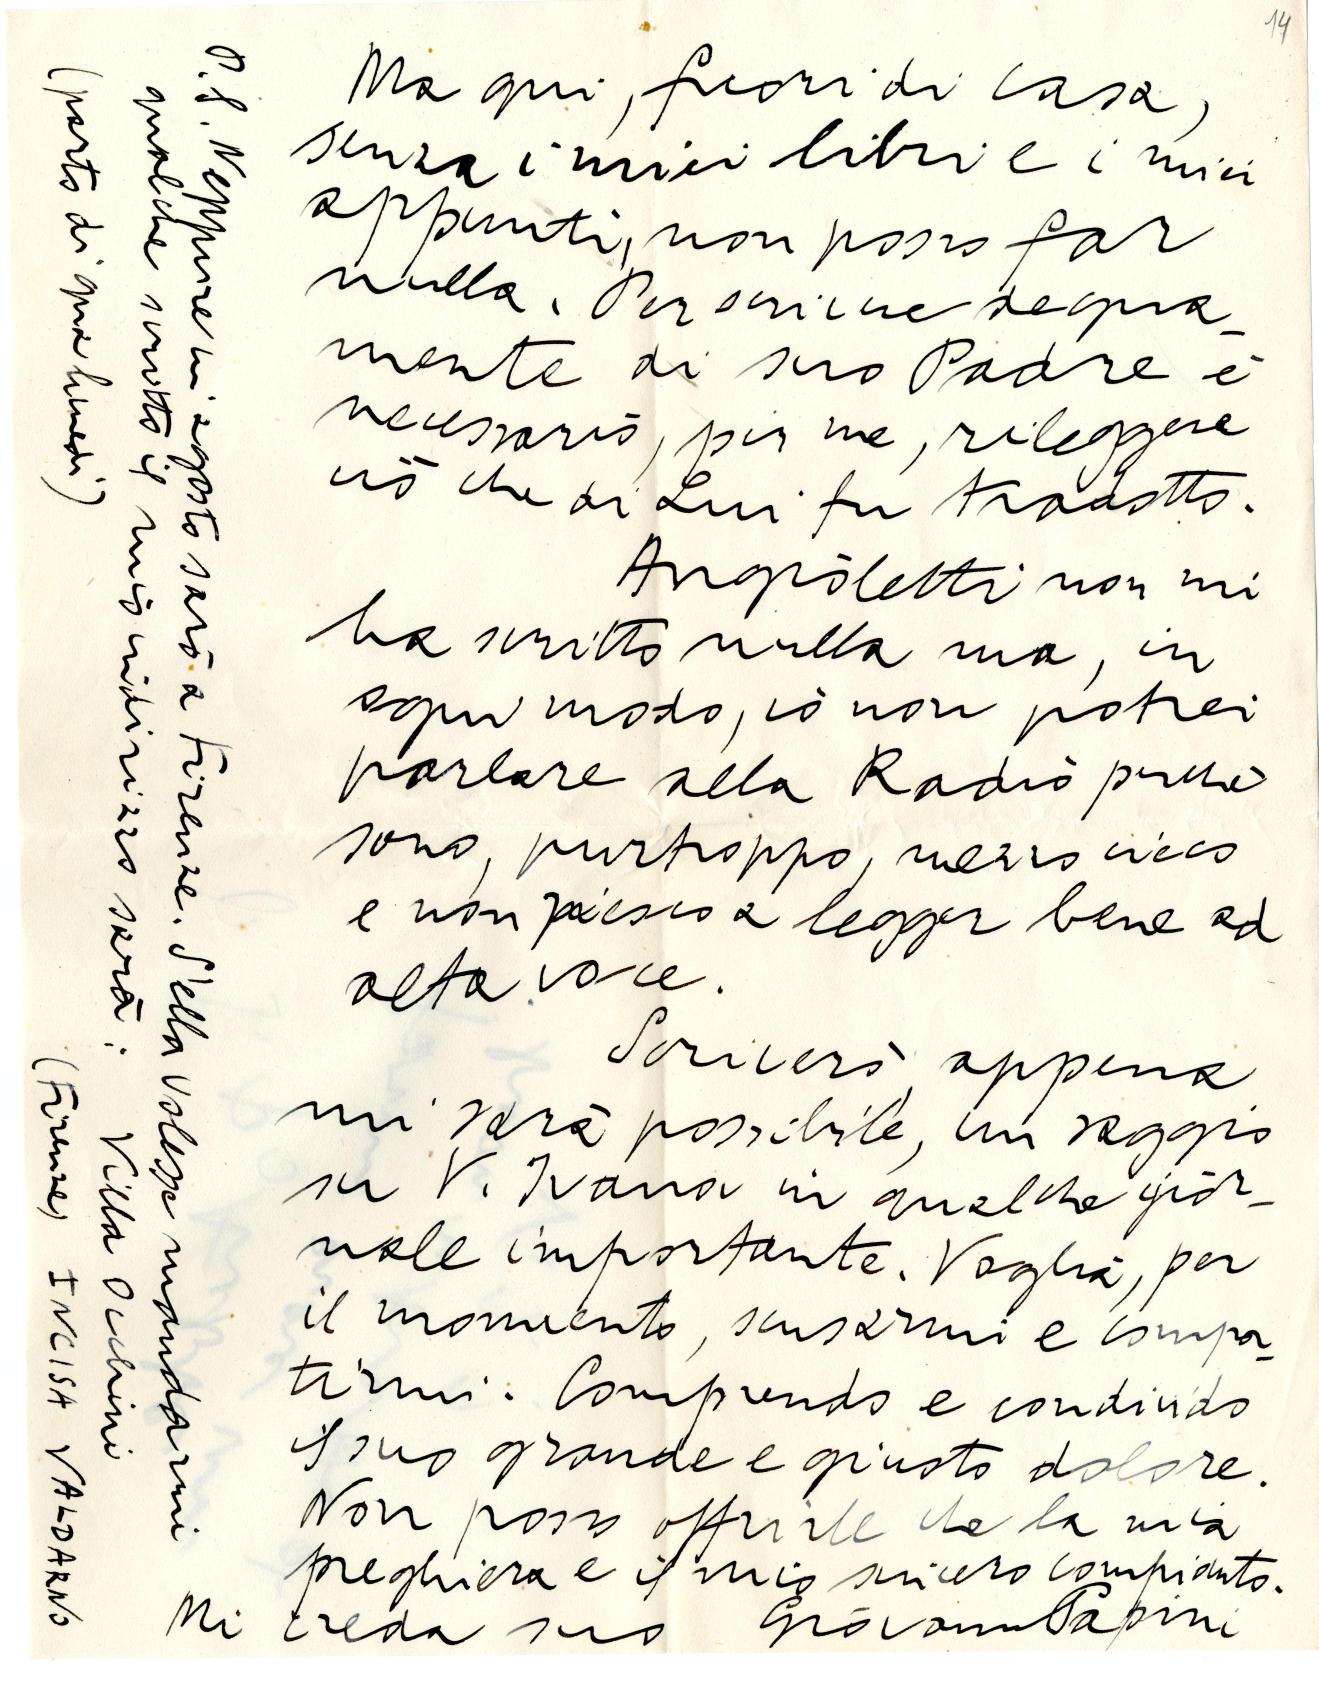 14
Ma qui, fuori di casa,
senza i miei libri e i miei
appunti, non posso far
nulla. Per scrivere degna-
mente di suo Padre è
necessario, per me, rileggere
ciò che di Lui fu tradotto.
Angioletti non mi
ha scritto nulla ma, in
ogni modo, io non potrei
parlare alla Radio perchè
sono, purtroppo, mezzo cieco
e non riesco a legger bene ad
alta voce.
Scriverò, appena
mi sarà possibile, un saggio
su V. Ivanov in qualche gior-
nale importante. Voglia, per
il momento, scusarmi e compa-
tirmi. Comprendo e condivido
il suo grande e giusto dolore.
Non posso offrirle che la mia
preghiera e il mio sincero compianto.
Mi creda suo Giovanni Papini
P.S. Neppure in agosto sarò a Firenze. S'ella volesse mandarmi
qualche scritto il mio indirizzo sarà: Villa Occhini
(parto di qua lunedì) (Firenze) INCISA VALDARNO